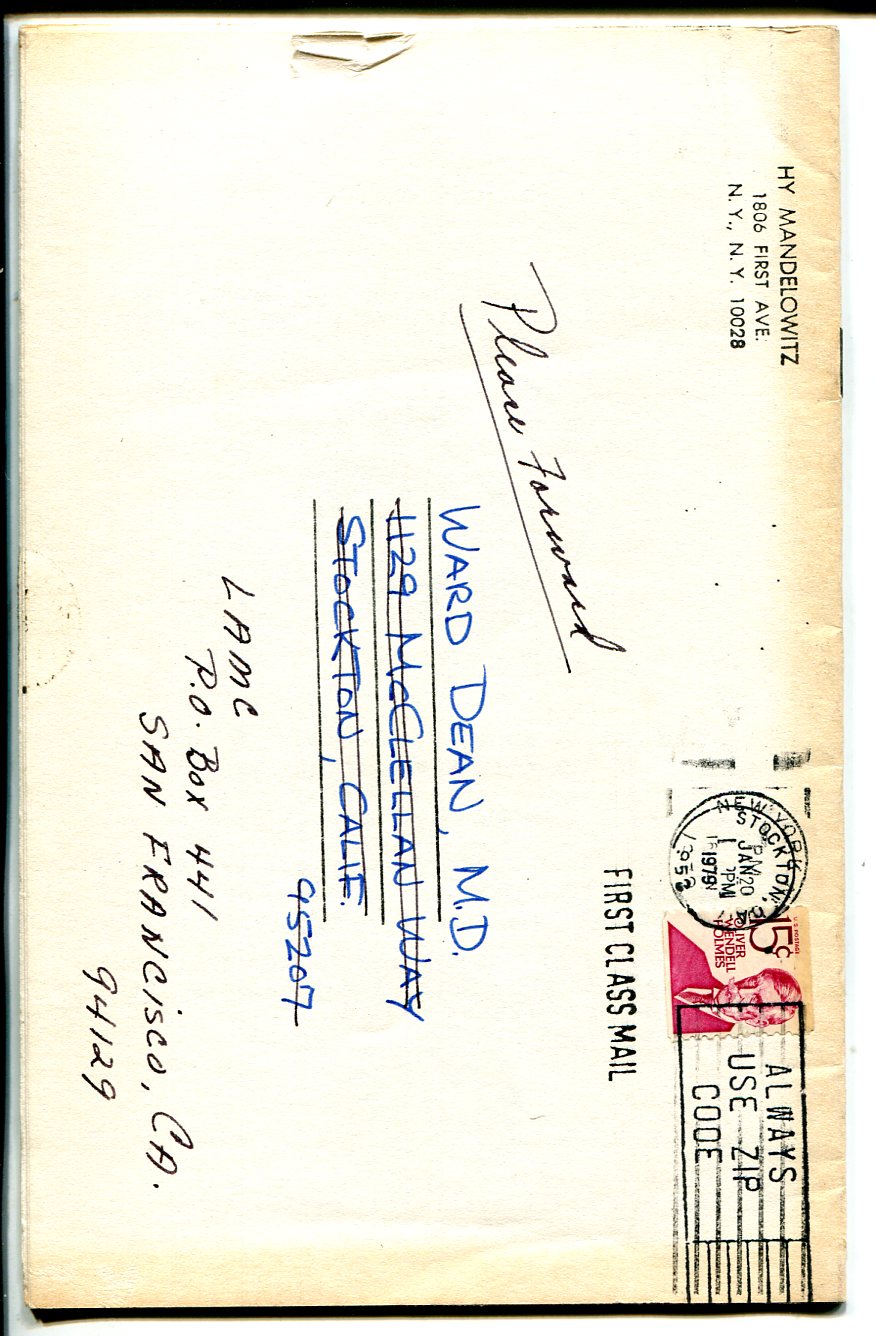 HY MANDELOWITZ
1806 FIRST AVE.
N. Y., N. Y. 10028
Please Forward
WARD DEAN, M.D.
1129 McCLELLAN WAY
STOCKTON, CALIF.
95207
LAMC
P.O. Box 441
SAN FRANCISCO, CA.
94129
NEW YORK
STOCKTON, CA
PM
JAN 20
1979
U.S. POSTAGE
15¢
OLIVER
WENDELL
HOLMES
ALWAYS
USE ZIP
CODE
FIRST CLASS MAIL